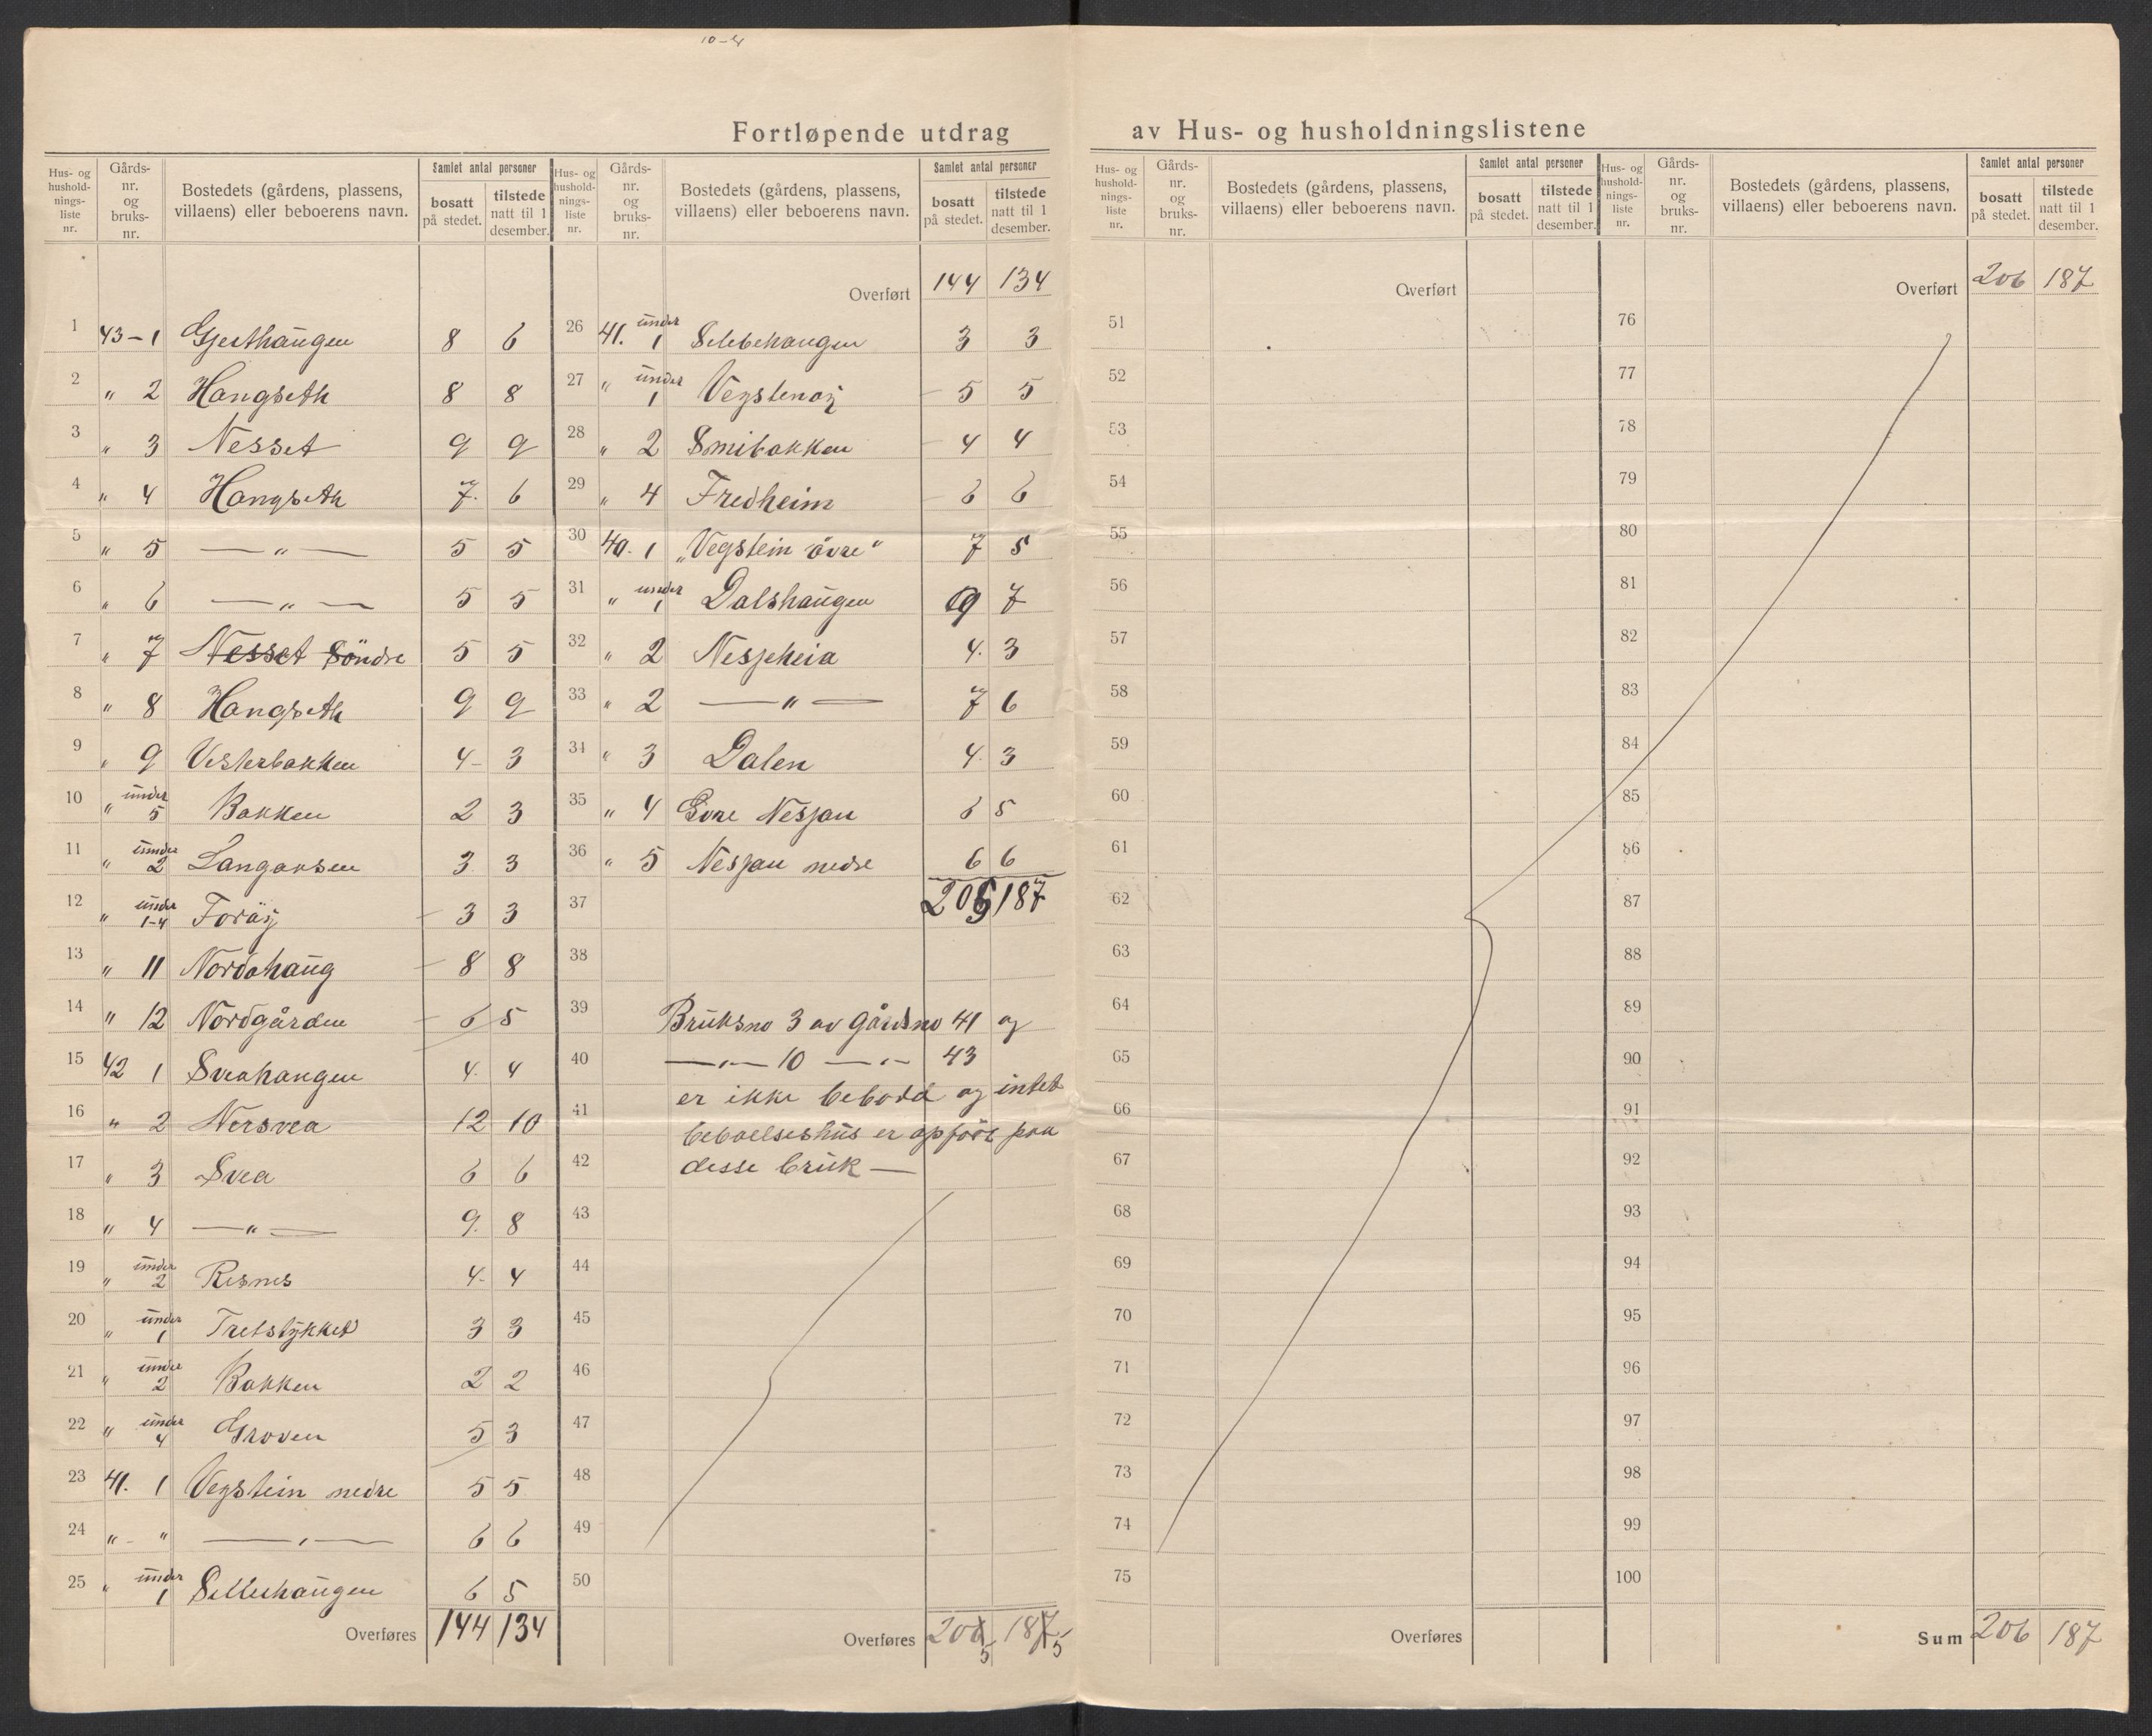 10-4
Fortløpende utdrag av Hus- og husholdningslistene
Hus- og husholdningsliste nr. Gårds-nr. og bruks-nr. Bostedets (gårdens, plassens, villaens) eller beboerens navn. Samlet antal personer bosatt på stedet. tilstede natt til 1 desember.
1 43-1 Gjesthaugen 8 6
2 " 2 Haugseth 8 8
3 " 3 Nesset 9 9
4 " 4 Haugseth 7. 6
5 " 5 — " — 5 5
6 " 6 — " — 5 5
7 " 7 Nesset Söndre 5 5
8 " 8 Haugseth 9 9
9 " 9 Vesterbakken 4- 3
10 " under 5 Bakken 2 3
11 " under 2 Langaasen 3 3
12 " under 1-4 Foröy 3 3
13 " 11 Nordahaug 8 8
14 " 12 Nordgården 6 5
15 42 1 Sveahaugen 4. 4
16 " 2 Nersvea 12 10
17 " 3 Svea 6 6
18 " 4 — " — 9. 8
19 " under 2 Resnes 4- 4
20 " under 1 Tretstykket 3 3
21 " under 2 Bakken 2 2
22 " under 4 Groven 5 3
23 41. 1 Vegstein nedre 5 5
24 " - " — " — 6 6
25 " under 1 6 5
Overføres 144 134
Hus- og husholdningsliste nr. Gårds-nr. og bruks-nr. Bostedets (gårdens, plassens, villaens) eller beboerens navn. Samlet antal personer bosatt på stedet. tilstede natt til 1 desember.
Overført 144 134
26 41. under 1 3 3
27 " under 1 5 5
28 " 2 Smibakken 4 4
29 " 4 Fredheim 6 6
30 40. 1 "Vegstein övre" 7 5
31 " under 1 Dalshaugen 9 7
32 " 2 Nesjeheia 4. 3
33 " 2 — " — 7 6
34 " 3 Dalen 4. 3
35 " 4 Nesjan 6 5
36 " 5 Nesjan nedre 6 6
37 187
38
39 Bruksno 3 av Gårdsno 41 og
40 — " — 10 — " — 43
er ikke bebodd og intet
41 beboelseshus er opfört paa
42 desse bruk —
43
44
45
46
47
48
49
50
Overføres
Hus- og husholdningsliste nr. Gårds-nr. og bruks-nr. Bostedets (gårdens, plassens, villaens) eller beboerens navn. Samlet antal personer bosatt på stedet. tilstede natt til 1 desember.
Overført
51
52
53
54
55
56
57
58
59
60
61
62
63
64
65
66
67
68
69
70
71
72
73
74
75
Overføres
Hus- og husholdningsliste nr. Gårds-nr. og bruks-nr. Bostedets (gårdens, plassens, villaens) eller beboerens navn. Samlet antal personer bosatt på stedet. tilstede natt til 1 desember.
Overført 206 187
76
77
78
79
80
81
82
83
84
85
86
87
88
89
90
91
92
93
94
95
96
97
98
99
100
Sum 206 187